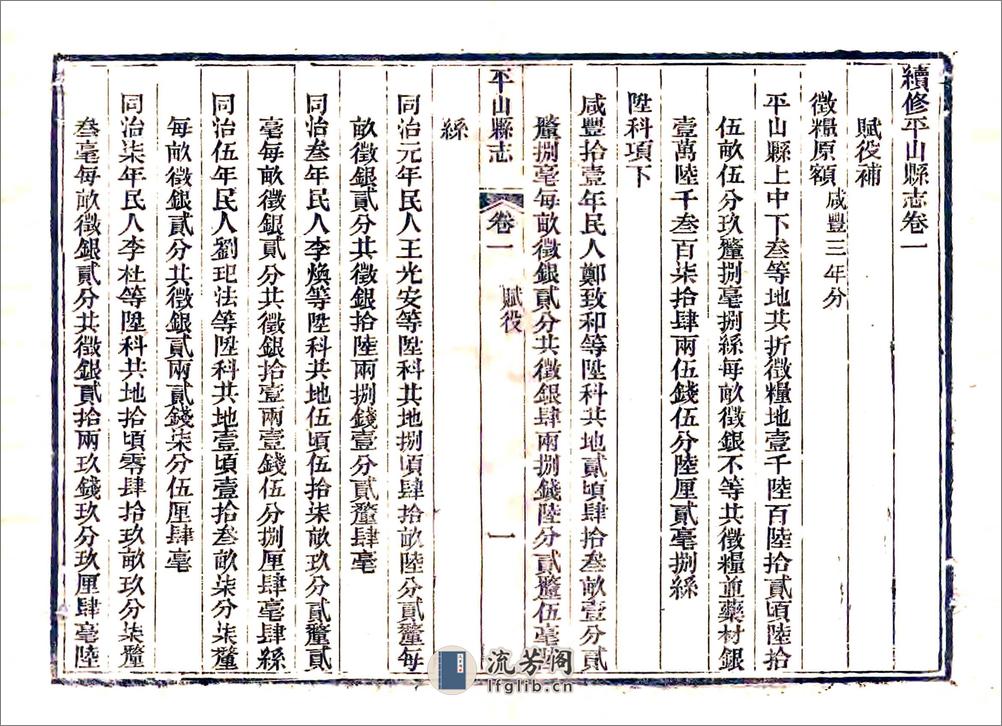 續修平山縣志卷一
賦役補
徵糧原額咸豐三年分
平山縣上中下叁等地共折徵糧地壹千陸百陸拾貳頃陸拾
伍畝伍分玖釐捌亳捌絲每畝徵銀不等共徵糧並藥材銀
壹萬陸千叁百柒拾肆兩伍錢伍分陸厘貳亳捌絲
陞科項下
咸豐拾壹年民人鄭致和等陞科共地貳頃肆拾叁畝壹分貳
釐捌亳每畝徵銀貳分共徵銀肆兩捌錢陸分貳釐伍亳
平山縣志 卷一 賦役 一
絲
同治元年民人王光安等陞科共地捌頃肆拾畝陸分貳釐每
畝徵銀貳分共徵銀拾陸兩捌錢壹分貳釐肆亳
同治叁年民人李煥等陞科共地伍頃伍拾柒畝玖分貳釐貳
亳每畝徵銀貳分共徵銀拾壹兩壹錢伍分捌厘肆亳肆絲
同治伍年民人劉玘法等陞科共地壹頃壹拾叁畝柒分柒釐
每畝徵銀貳分共徵銀貳兩貳錢柒分伍厘肆亳
同治柒年民人李杜等陞科共地拾頃零肆拾玖畝玖分柒釐
叁亳每畝徵銀貳分共徵銀貳拾兩玖錢玖分玖厘肆亳陸
流芳阁
lfglib.cn